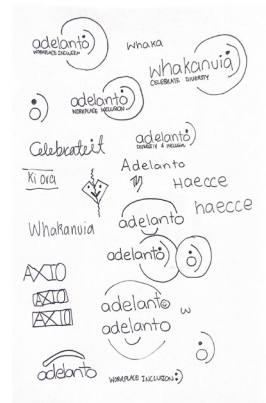 adelanto
WORKPLACE INCLUSION
Whaka
Whakanuia
CELEBRATE DIVERSITY
adelanto
WORKPLACE INCLUSION
Celebrateit
adelanto
DIVERSITY & INCLUSION
Adelanto
Ki ora
Haecce
haecce
Whakanuia
adelanto
adelanto
AXIO
adelanto
AXIO
AXIO
adelanto
w
adelanto
WORKPLACE INCLUSION